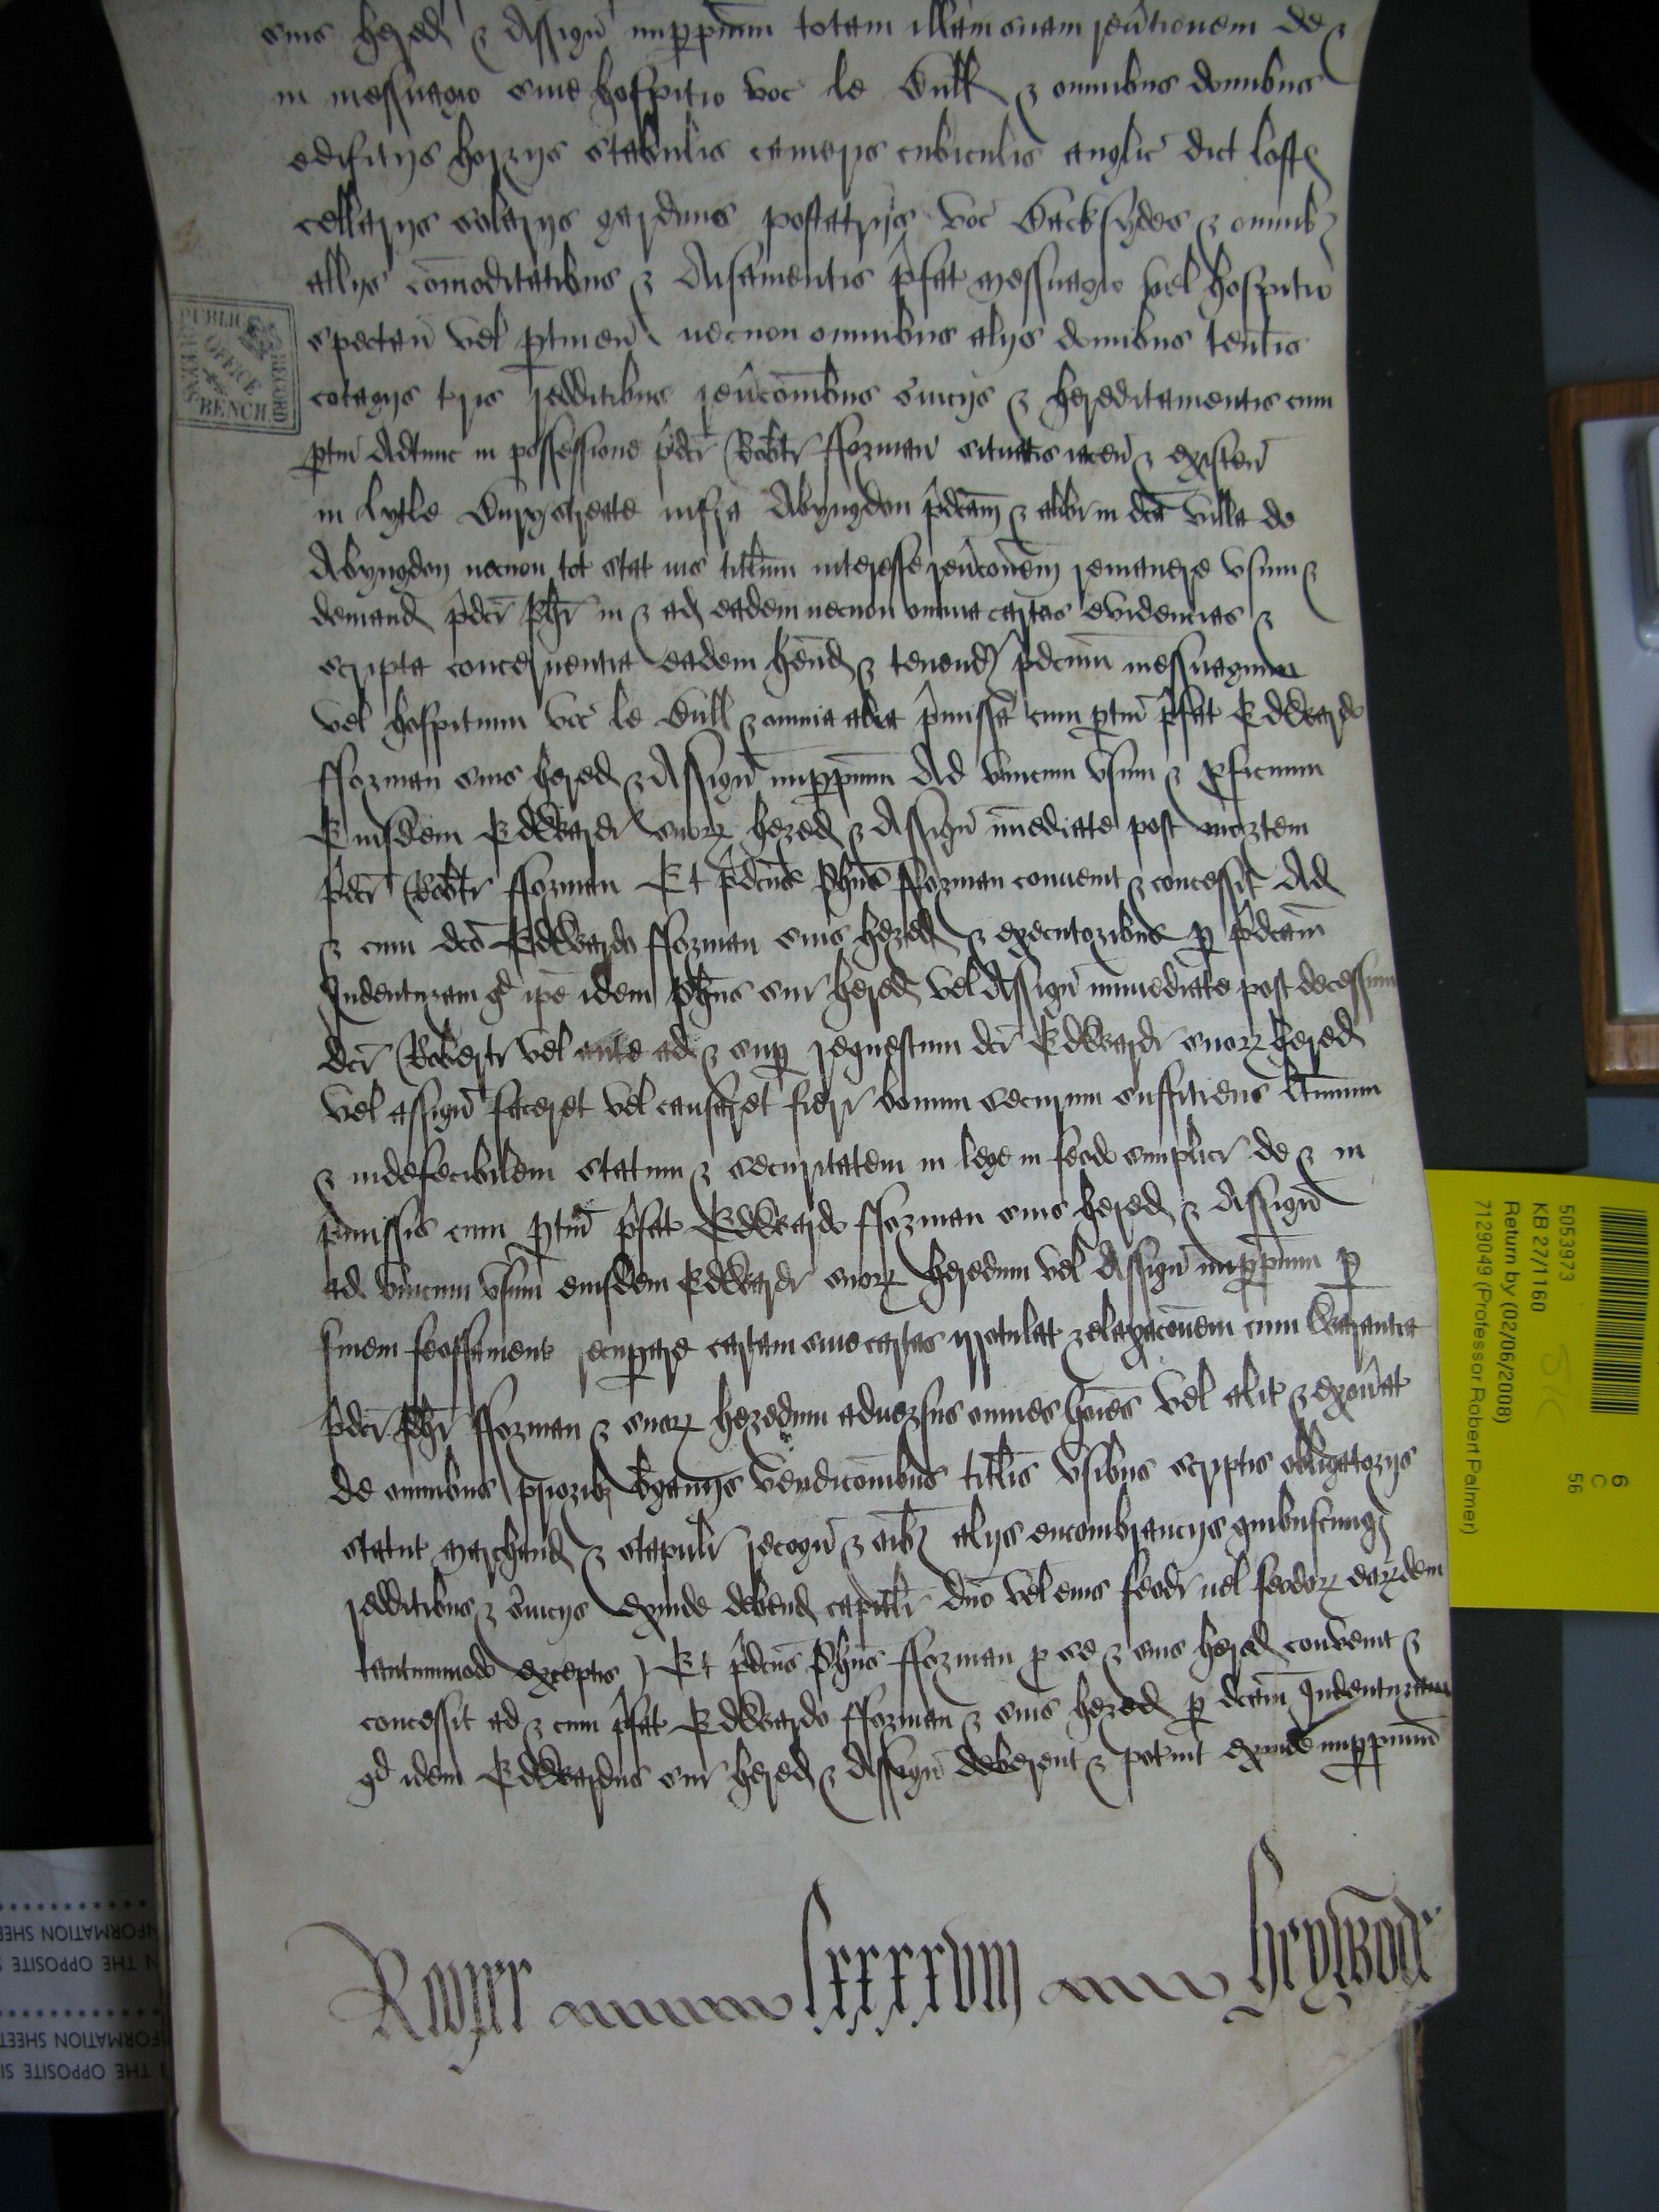 suis hered & Assign imppm totam illam suam reu̓tionem de &
in messuagio siue hospitio voc le Bull & omnibus domibus
edifitijs horrijs stabulis cameris cubiculis anglic̄ dict loftꝭ
cellarijs solarijs gardinis postatrijs voc Backsydes & omnibꝫ
allijs com̄oditatibus & Aisiamentis p̓fat messuagio vel hospitio
spectan̄ vel ꝑtinen̄ necnon omnibus alijs domibus ten̄tis
cotagijs t̓ris redditibus reu̓c̄onibus s̓uicijs & hereditamentis cum
ꝑtin̄ Adtunc in possessione p̓dc̄i Rob̄ti fforman̄ situatis iacen̄ & existen̄
in lytle Burystrete infra Abyngdon p̓dc̄am & alibi in dc̄a villa de
Abyngdon necnon tot stat ius tit̄lum interesse reu̓c̄onem remanere vsum &
demand p̓dc̄i Ph̄i in & ad eadem necnon omnia cartas evidencias &
scripta concernentia eadem hēnd & tenend p̓dc̄um messuagium
vel hospitium voc̄ le Bull & omnia alia p̓missa cum ꝑtin̄ p̓fat Edwardo
fforman suis hered & Assign̄ imꝑpm̄ Ad vnicum vsum & ꝓficuum
Eiusdem Edwardi suoꝝ hered & Assign̄ im̄ediate post mortem
p̓dc̄i Rob̄ti fforman Et p̓dc̄us Ph̄us fforman conuenit & concessit Ad
& cum dc̄o Edwardo fforman suis hered & executoribus ꝑ p̓dc̄am
Indenturam qd ip̄e idem Ph̄us sui hered vel Assign̄ immediate post decessum
dc̄i Roberti vel ante ad & sup̱ requestum dc̄i Edwardi suoꝝ hered
vel assign̄ faceret vel causaret fieri bonum securum suffitiens l̄timum
& indefecibilem statum & securitatem in lege in feodo simplici de & in
p̓missis cum ꝑtin̄ p̓fat Edwardo fforman suis hered & Assign̄
ad vnicum vsum eiusdem Edwardi suoꝝ heredum vel Assign̄ imꝑpm̄ ꝑ
finem feoffament recuꝑare cartam siue cartas irrotulat relaxac̄onem cum Warantia
p̓dc̄i Ph̄i fforman & suoꝝ heredum aduersus omnes ho̅i̅es vel alit & exon̓at
de omnibus prioribꝫ b̓ganijs vendic̄onibus tit̄lis vsibus scriptis obligatorijs
statut marchand & stapuli recogn̄ & aib̄ꝫ alijs encombrancijs quibuscunqꝫ
redditibus & s̓uicijs exinde debend capitali dn̄o vel eius feodi uel feodoꝝ eaꝝdem
tantummodo exceptis ) Et p̓dc̄us Ph̄us fforman ꝑ se & suis hered convenit &
concessit ad & cum p̓fat Edwardo fforman & suis hered ꝑ dc̄am Indenturam
qd idem Edwardus sui hered & Assign̄ deberent & pot̓int exinde imꝑpm̄
Roger lxxxxviij Heywode
PUBLIC RECORD OFFICE QUEENS BENCH
5053973
KB 27/1160
Return by (02/06/2008)
7129049 (Professor Robert Palmer)
6
C
56
INFORMATION SHEET
THE OPPOSITE SI